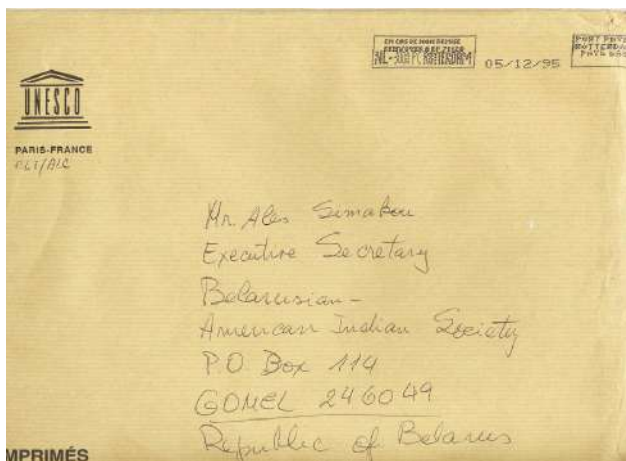 EN CAS DE NON REMISE
NL-3000 ROTTERDAM
05/12/95
PORT PAYE
ROTTERDAM
PAYS BAS
UNESCO
PARIS-FRANCE
CLT/AIC
Mr. Ales Simakou
Executive Secretary
Belarusian-
American Indian Society
P.O. Box 114
GOMEL 246049
Republic of Belarus
MPRIMÉS